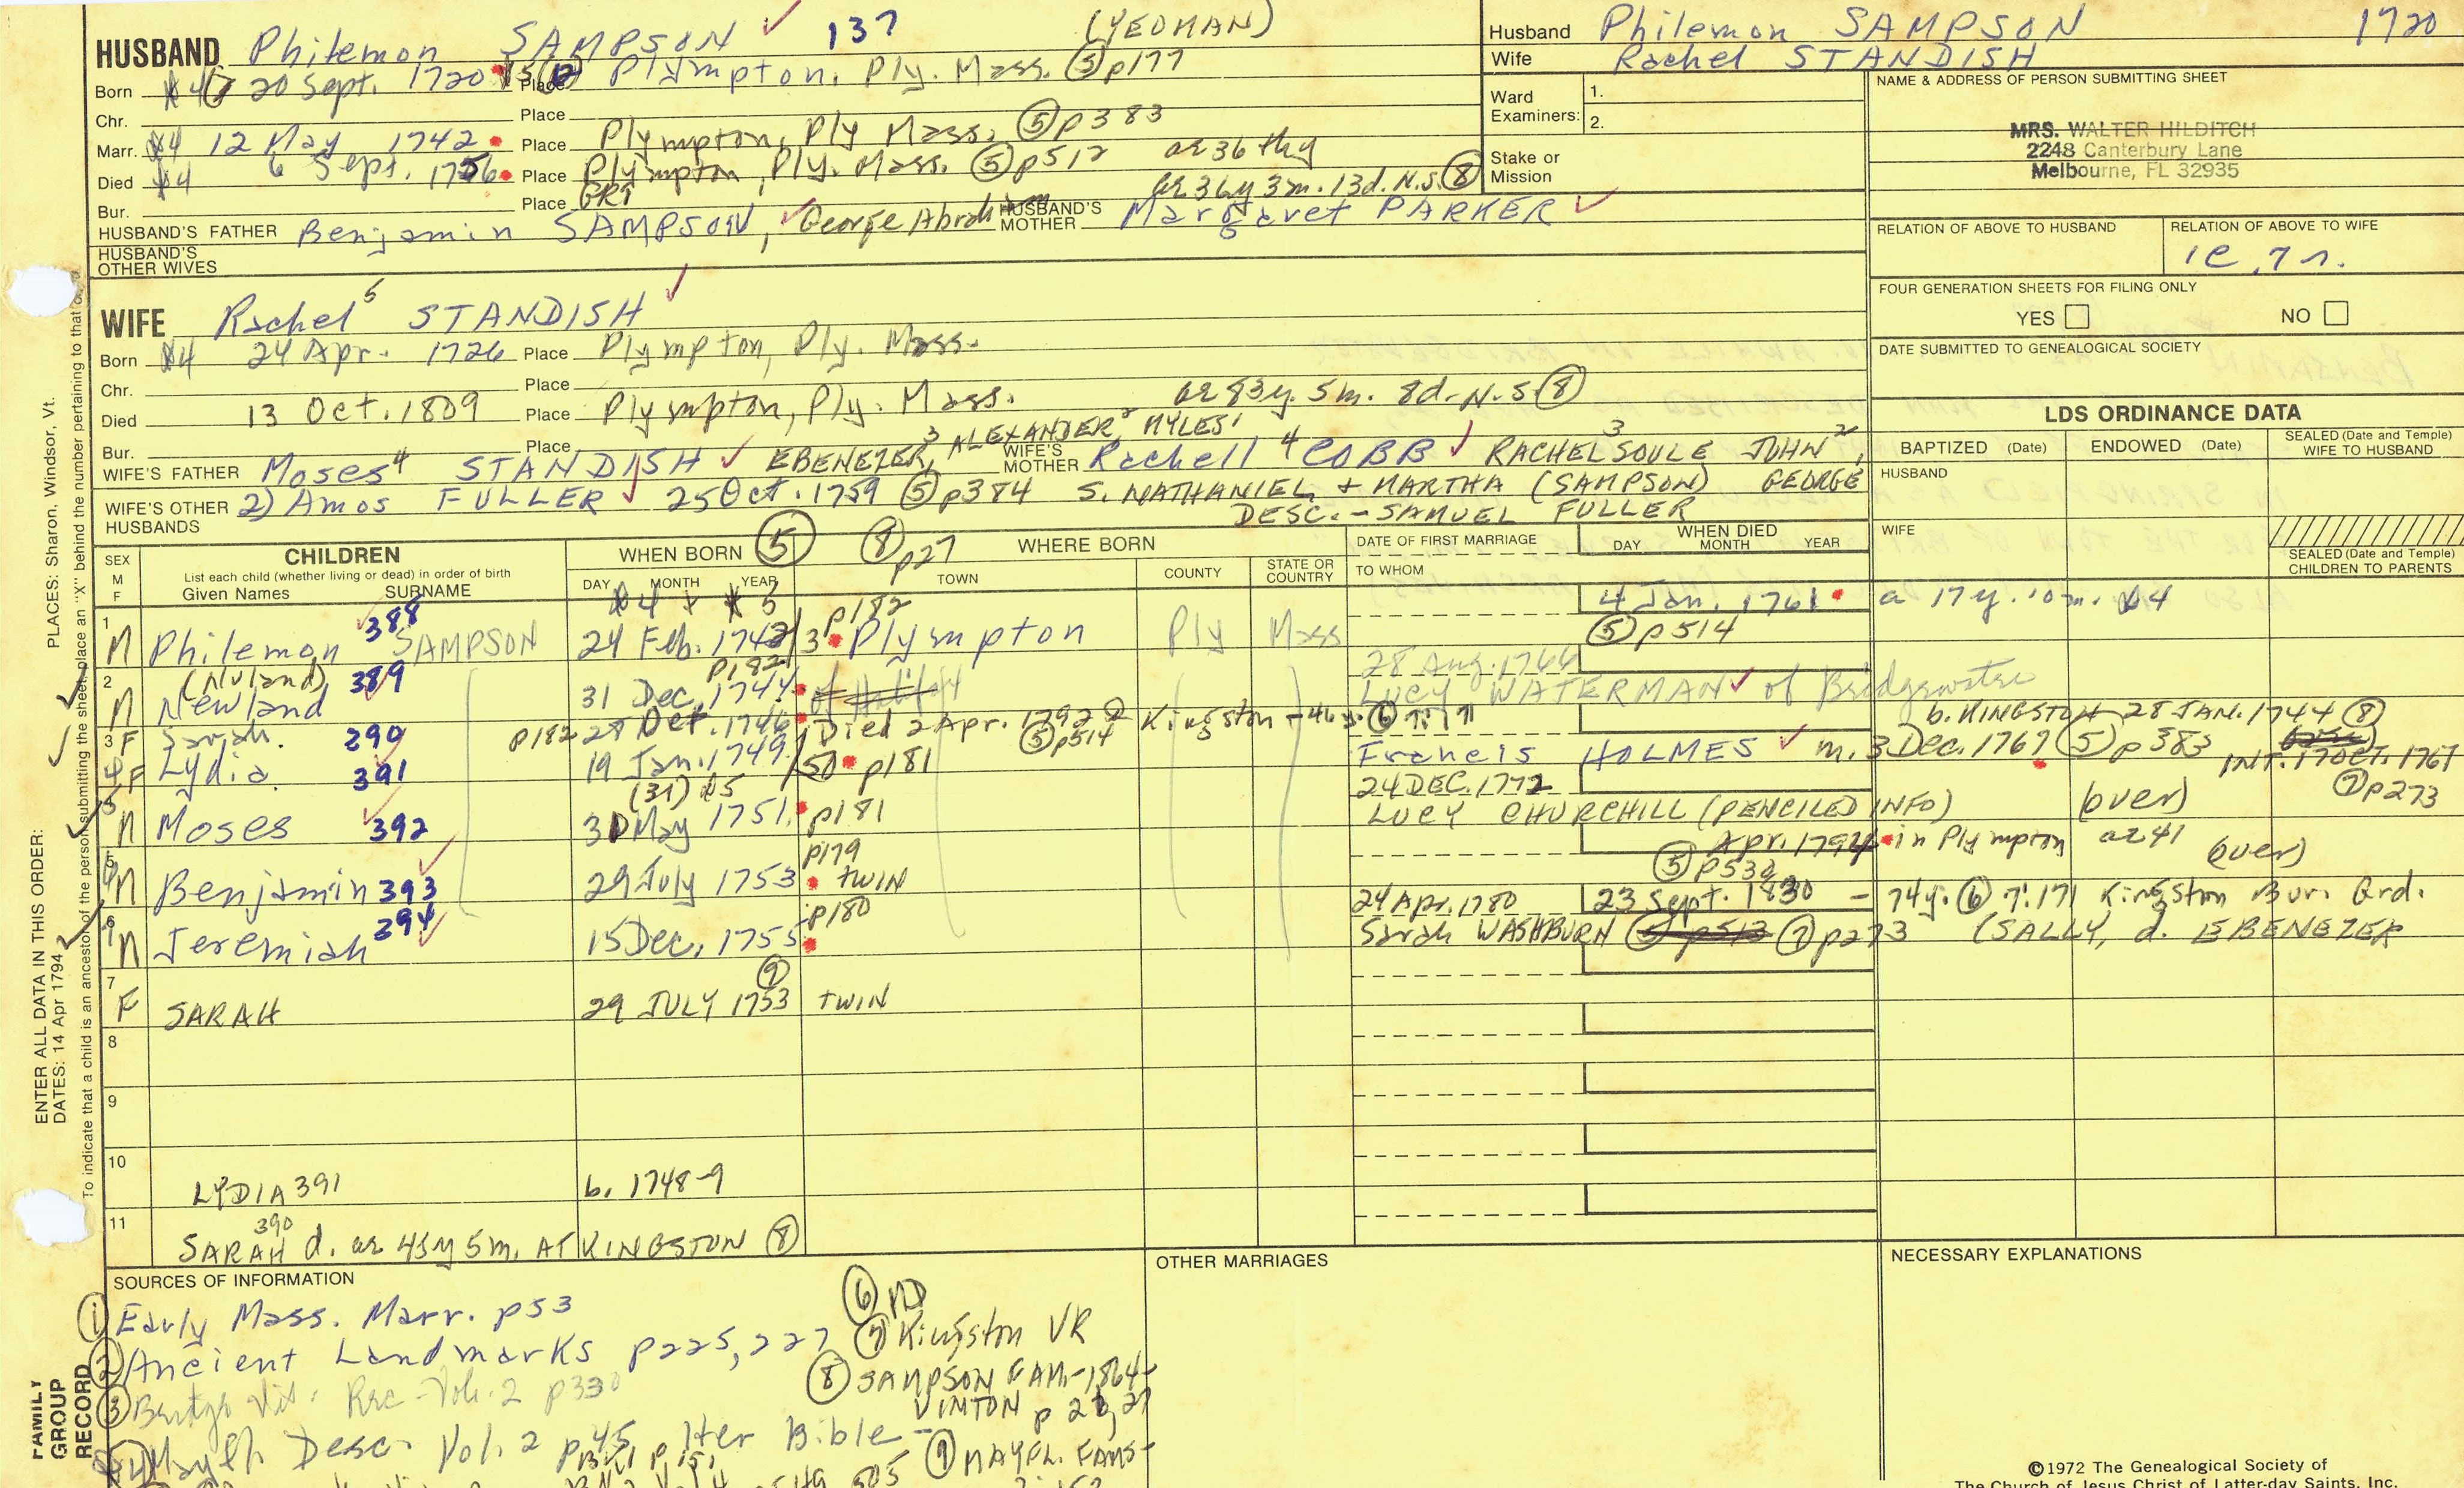 HUSBAND Philemon SAMPSON ✓ 137 (YEOMAN)
Born 20 Sept. 1720 Place Plympton, Ply. Mass. ⑤ p177
Chr. Place
Marr. 12 May 1742 Place Plympton, Ply Mass. ⑤ p383
Died 6 Sept. 1756 Place Plympton, Ply. Mass. ⑤ p512 ae 36 thy
Bur. Place GRI ae 36y 3m. 13d. N.S. ⑧
HUSBAND'S FATHER Benjamin SAMPSON, ✓ George Abrah HUSBAND'S MOTHER Margaret PARKER ✓
HUSBAND'S OTHER WIVES
Husband Philemon SAMPSON 1720
Wife Rachel STANDISH
Ward Examiners: 1.
2.
Stake or Mission
NAME & ADDRESS OF PERSON SUBMITTING SHEET
MRS. WALTER HILDITCH
2248 Canterbury Lane
Melbourne, FL 32935
RELATION OF ABOVE TO HUSBAND RELATION OF ABOVE TO WIFE
1c.7r.
FOUR GENERATION SHEETS FOR FILING ONLY
YES NO
DATE SUBMITTED TO GENEALOGICAL SOCIETY
WIFE Rachel⁵ STANDISH ✓
Born 24 Apr. 1726 Place Plympton, Ply. Mass.
Chr. Place
Died 13 Oct. 1809 Place Plympton, Ply. Mass. ae 83y. 5m. 8d. N.S. ⑧
Bur. Place
WIFE'S FATHER Moses⁴ STANDISH ✓ EBENEZER,³ ALEXANDER² MYLES¹ WIFE'S MOTHER Rachell⁴ COBB ✓ RACHEL³ SOULE JOHN²,
WIFE'S OTHER HUSBANDS 2) Amos FULLER ✓ 25 Oct. 1759 ⑤ p384 S. NATHANIEL + MARTHA (SAMPSON) GEORGE
DESC. - SAMUEL FULLER
LDS ORDINANCE DATA
BAPTIZED (Date) ENDOWED (Date) SEALED (Date and Temple) WIFE TO HUSBAND
HUSBAND
WIFE
SEALED (Date and Temple) CHILDREN TO PARENTS
SEX M F CHILDREN List each child (whether living or dead) in order of birth Given Names SURNAME
WHEN BORN ⑤ DAY MONTH YEAR
⑧ p27 WHERE BORN TOWN COUNTY STATE OR COUNTRY
DATE OF FIRST MARRIAGE TO WHOM WHEN DIED DAY MONTH YEAR
1 M Philemon 388 SAMPSON 24 Feb. 1742/3 p182 Plympton Ply Mass 4 Jan. 1761 ⑤ p514 a 17y. 10m.
2 M (Nuland) Newland 389 31 Dec. 1744 p182 28 Aug. 1766 LUCY WATERMAN ✓ of Bridgewater
3 F Sarah 290 p182 28 Oct. 1746 Died 2 Apr. 1792 ⑤ p514 Kingston - 46y. ⑥ 7:171
b. KINGSTON 28 JAN. 1744 ⑧
4 F Lydia 391 19 Jan. 1749/50 p181 Francis HOLMES ✓ m. 3 Dec. 1767 ⑤ p383 INT. 17 OCT. 1767 ⑦ p273
5 M Moses 392 (31) 31 May 1751 p181 24 DEC. 1772 LUCY CHURCHILL (PENCILED INFO) (over)
M Benjamin 393 29 July 1753 p179 TWIN Apr. 1794 in Plympton ae 41 (over) ⑤ p532
6 M Jeremiah 394 15 Dec. 1755 p180 24 Apr. 1780 Sarah WASHBURN ⑦ p273 23 Sept. 1830 - 74y. ⑥ 7:171 Kingston Bur. Grd. (SALLY, d. EBENEZER
7 F SARAH 29 JULY 1753 ⑨ TWIN
8
9
10 LYDIA 391 b. 1748-9
11 SARAH 390 d. ae 45y 5m. AT KINGSTON ⑧
SOURCES OF INFORMATION
① Early Mass. Marr. p53
② Ancient Landmarks p225, 227
③ Bridge Vit. Rec - Vol. 2 p330
④ Mayfl Desc. Vol. 2 p45 Iter Bible -
⑥ MD
⑦ Kingston VR
⑧ SAMPSON FAM. - 1864 - VINTON p 21, 27
⑨ MAYFL. FAMS -
OTHER MARRIAGES
NECESSARY EXPLANATIONS
©1972 The Genealogical Society of
The Church of Jesus Christ of Latter-day Saints, Inc.
FAMILY GROUP RECORD
ENTER ALL DATA IN THIS ORDER:
DATES: 14 Apr 1794
PLACES: Sharon, Windsor, Vt.
To indicate that a child is an ancestor of the person submitting the sheet, place an "X" behind the number pertaining to that